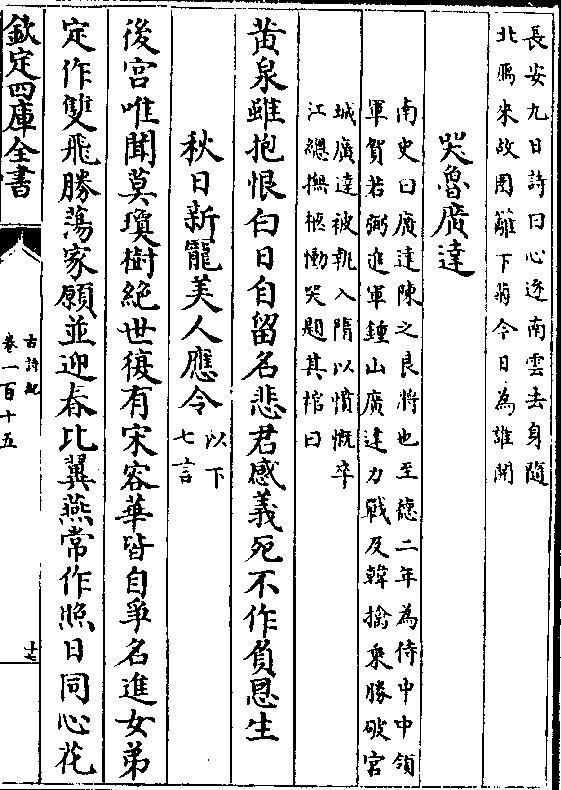 長安九日詩曰心逐南雲去身隨
北鴈來故園籬下菊今日為誰開
哭魯廣達
南史曰廣達陳之良將也至德二年為侍中中領
軍賀若弼進軍鍾山廣達力戰及韓擒乗勝破宮
城廣達被執入隋以憤慨卒
江緫撫柩慟哭題其棺曰
黄泉雖抱恨白日自留名悲君感義死不作負恩生
秋日新寵美人應令
以下
七言
後宫唯聞莫瓊樹絶世復有宋容華皆自爭名進女弟
定作雙飛勝蕩家願並迎春比翼燕常作照日同心花
欽定四庫全書
古詩紀
卷一百十五
十七